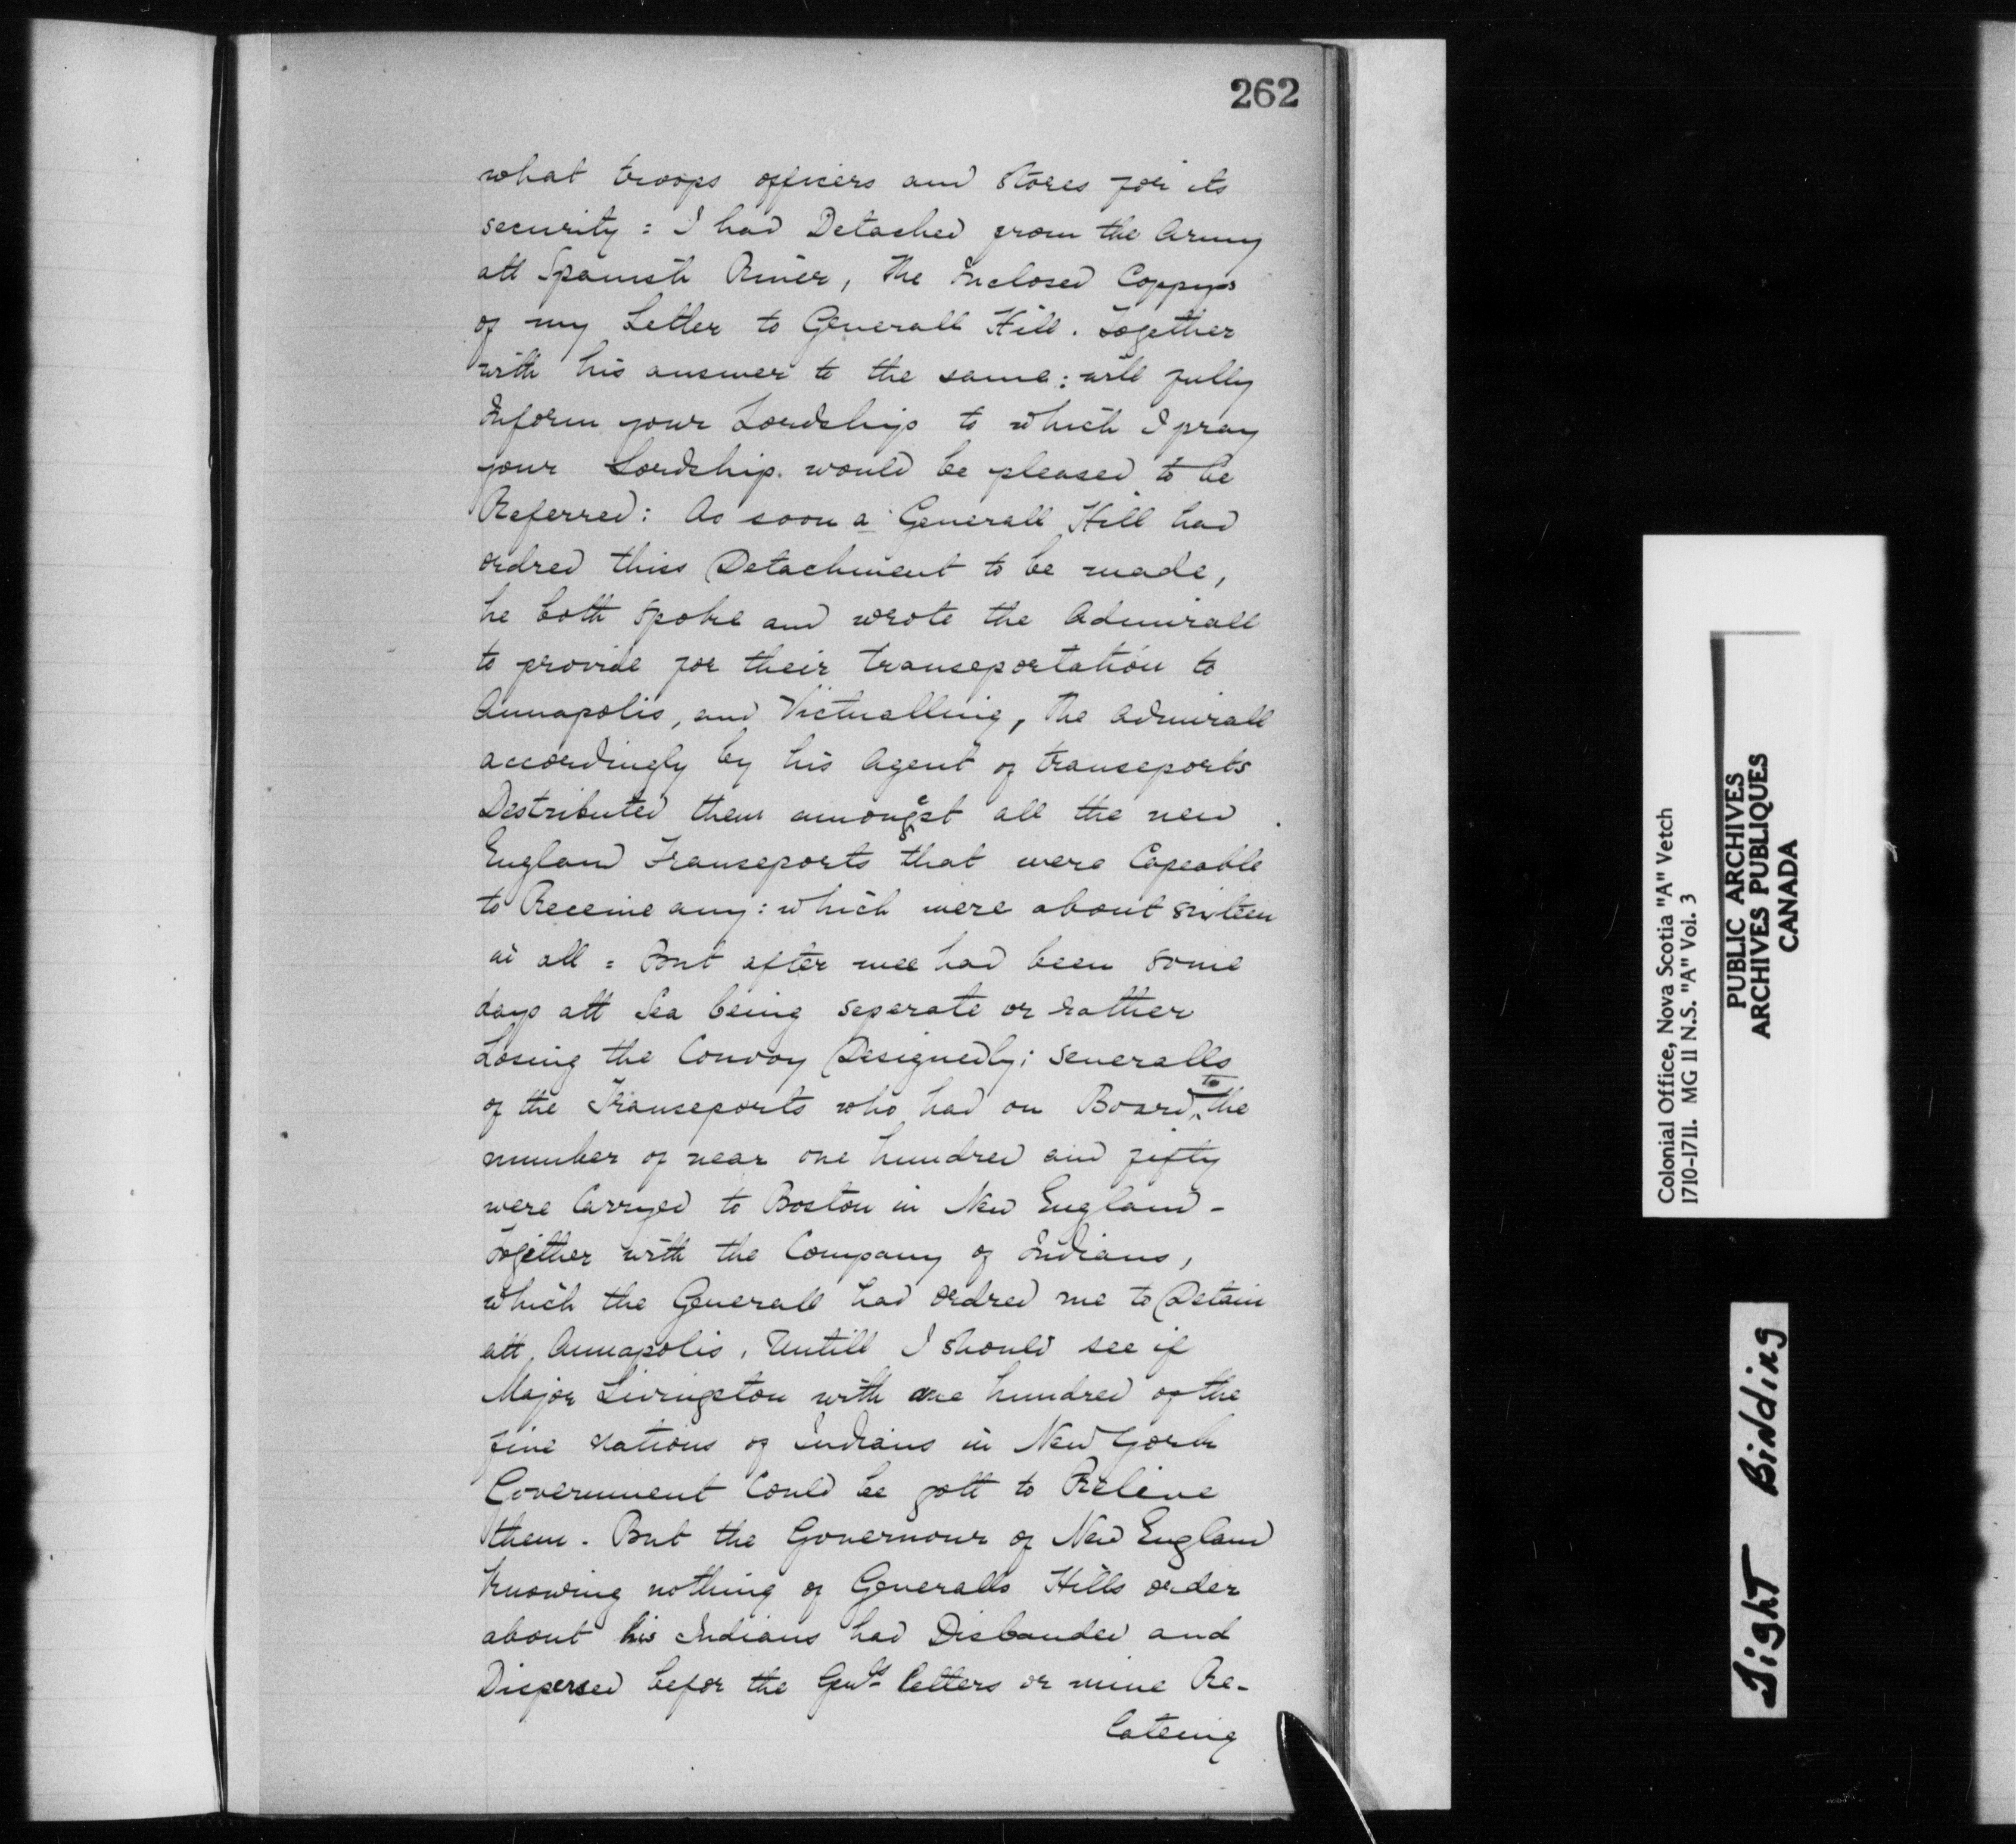 262
what troops officers and stores for its
security : I had Detached from the Army
att Spanish River, the Inclosed Coppys
of my Letter to Generall Hill. Together
with his answer to the same : will fully
Inform your Lordships to which I pray
your Lordship. would be pleased to be
Referred : As soon a Generall Hill had
ordred thiss Detachment to be made,
he both spoke and wrote the Admirall
to provide for their transeportation to
Annapolis, and Victualling, the Admirall
accordingly by his Agent of transeports
Destributed them amongest all the new
England Transeports that were Capeable
to Receive any : which were about sixteen
in all : But after wee had been some
days att Sea being seperate or rather
Losing the Convoy Designedly ; severalls
of the Transeports who had on Board to the
number of near one hundred and fifty
were Carryed to Boston in New England -
Together with the Company of Indians,
which the Generall had ordred me to Detain
att Annapolis, Untill I should see if
Major Livingston with one hundred of the
five nations of Indians in New York
Government Could be gott to Relieve
them. But the Governour of New England
knowing nothing of Generalls Hills order
about his Indians had Disbanded and
Dispersed befor the Genlls letters or mine Re-
lateing
Colonial Office, Nova Scotia "A" Vetch
1710-1711. MG 11 N.S. "A" Vol. 3
PUBLIC ARCHIVES
ARCHIVES PUBLIQUES
CANADA
Tight Binding